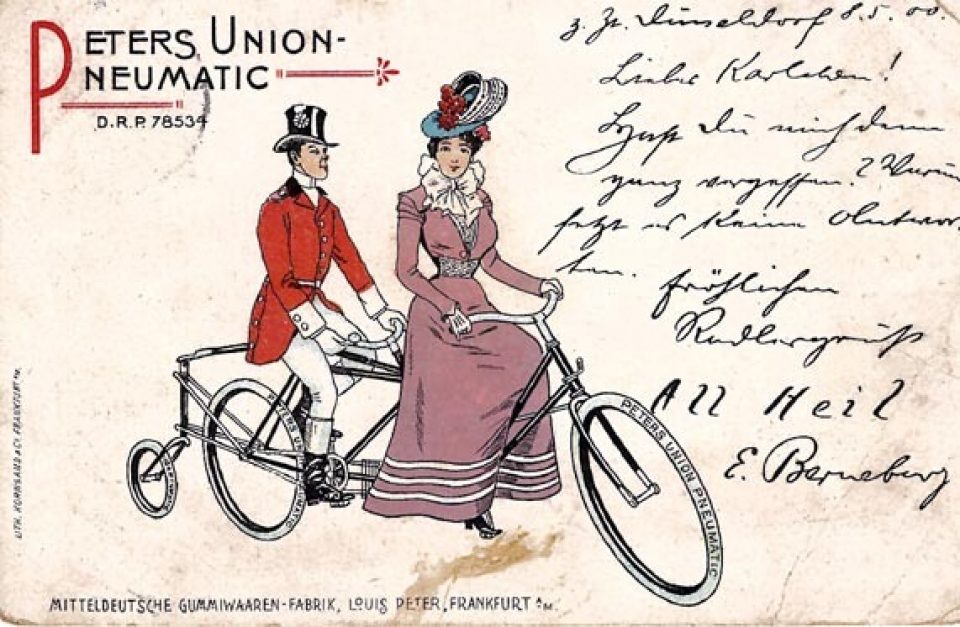 PETERS UNION-
PNEUMATIC
D.R.P. 78534
z. Zt. Düsseldorf 8.5.00.
Liebes Karlchen!
Hast Du mich denn
ganz vergessen? Warum
setzt es keine Antwor-
ten.
fröhlichen
Radlergruß
All Heil
E. Berneburg
PETERS UNION PNEUMATIC
PETERS UN
MATIC
LITH. KORNSAND & CO. FRANKFURT A/M.
MITTELDEUTSCHE GUMMIWAAREN-FABRIK, LOUIS PETER, FRANKFURT A/M.